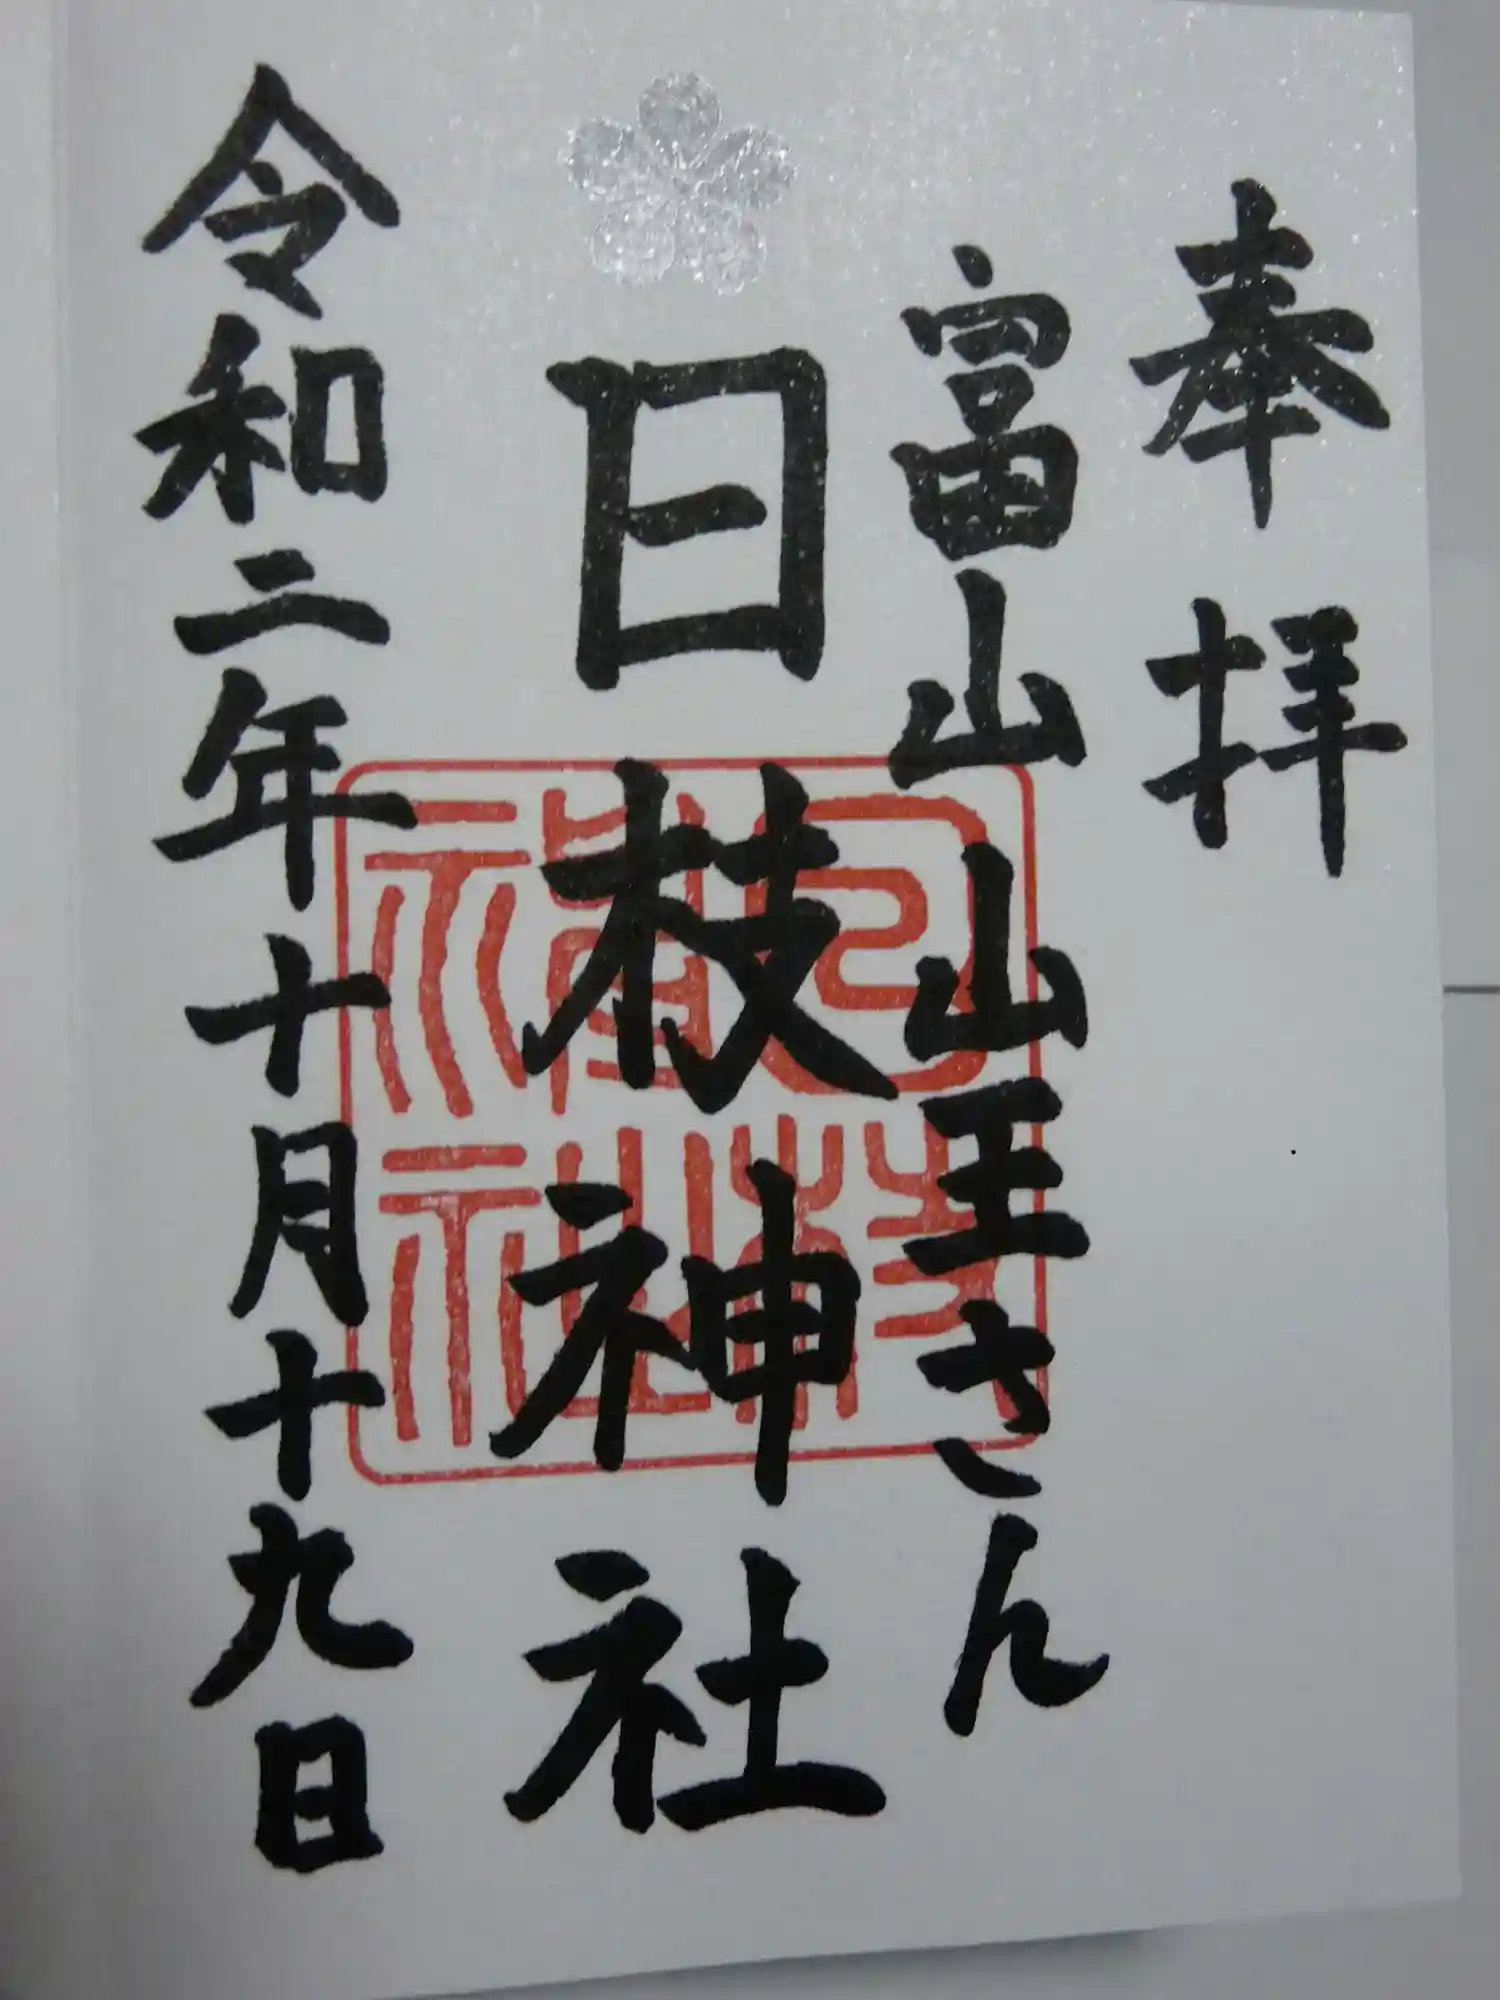 奉拝
富山山王さん
日枝神社
令和二年十月十九日
日枝神社